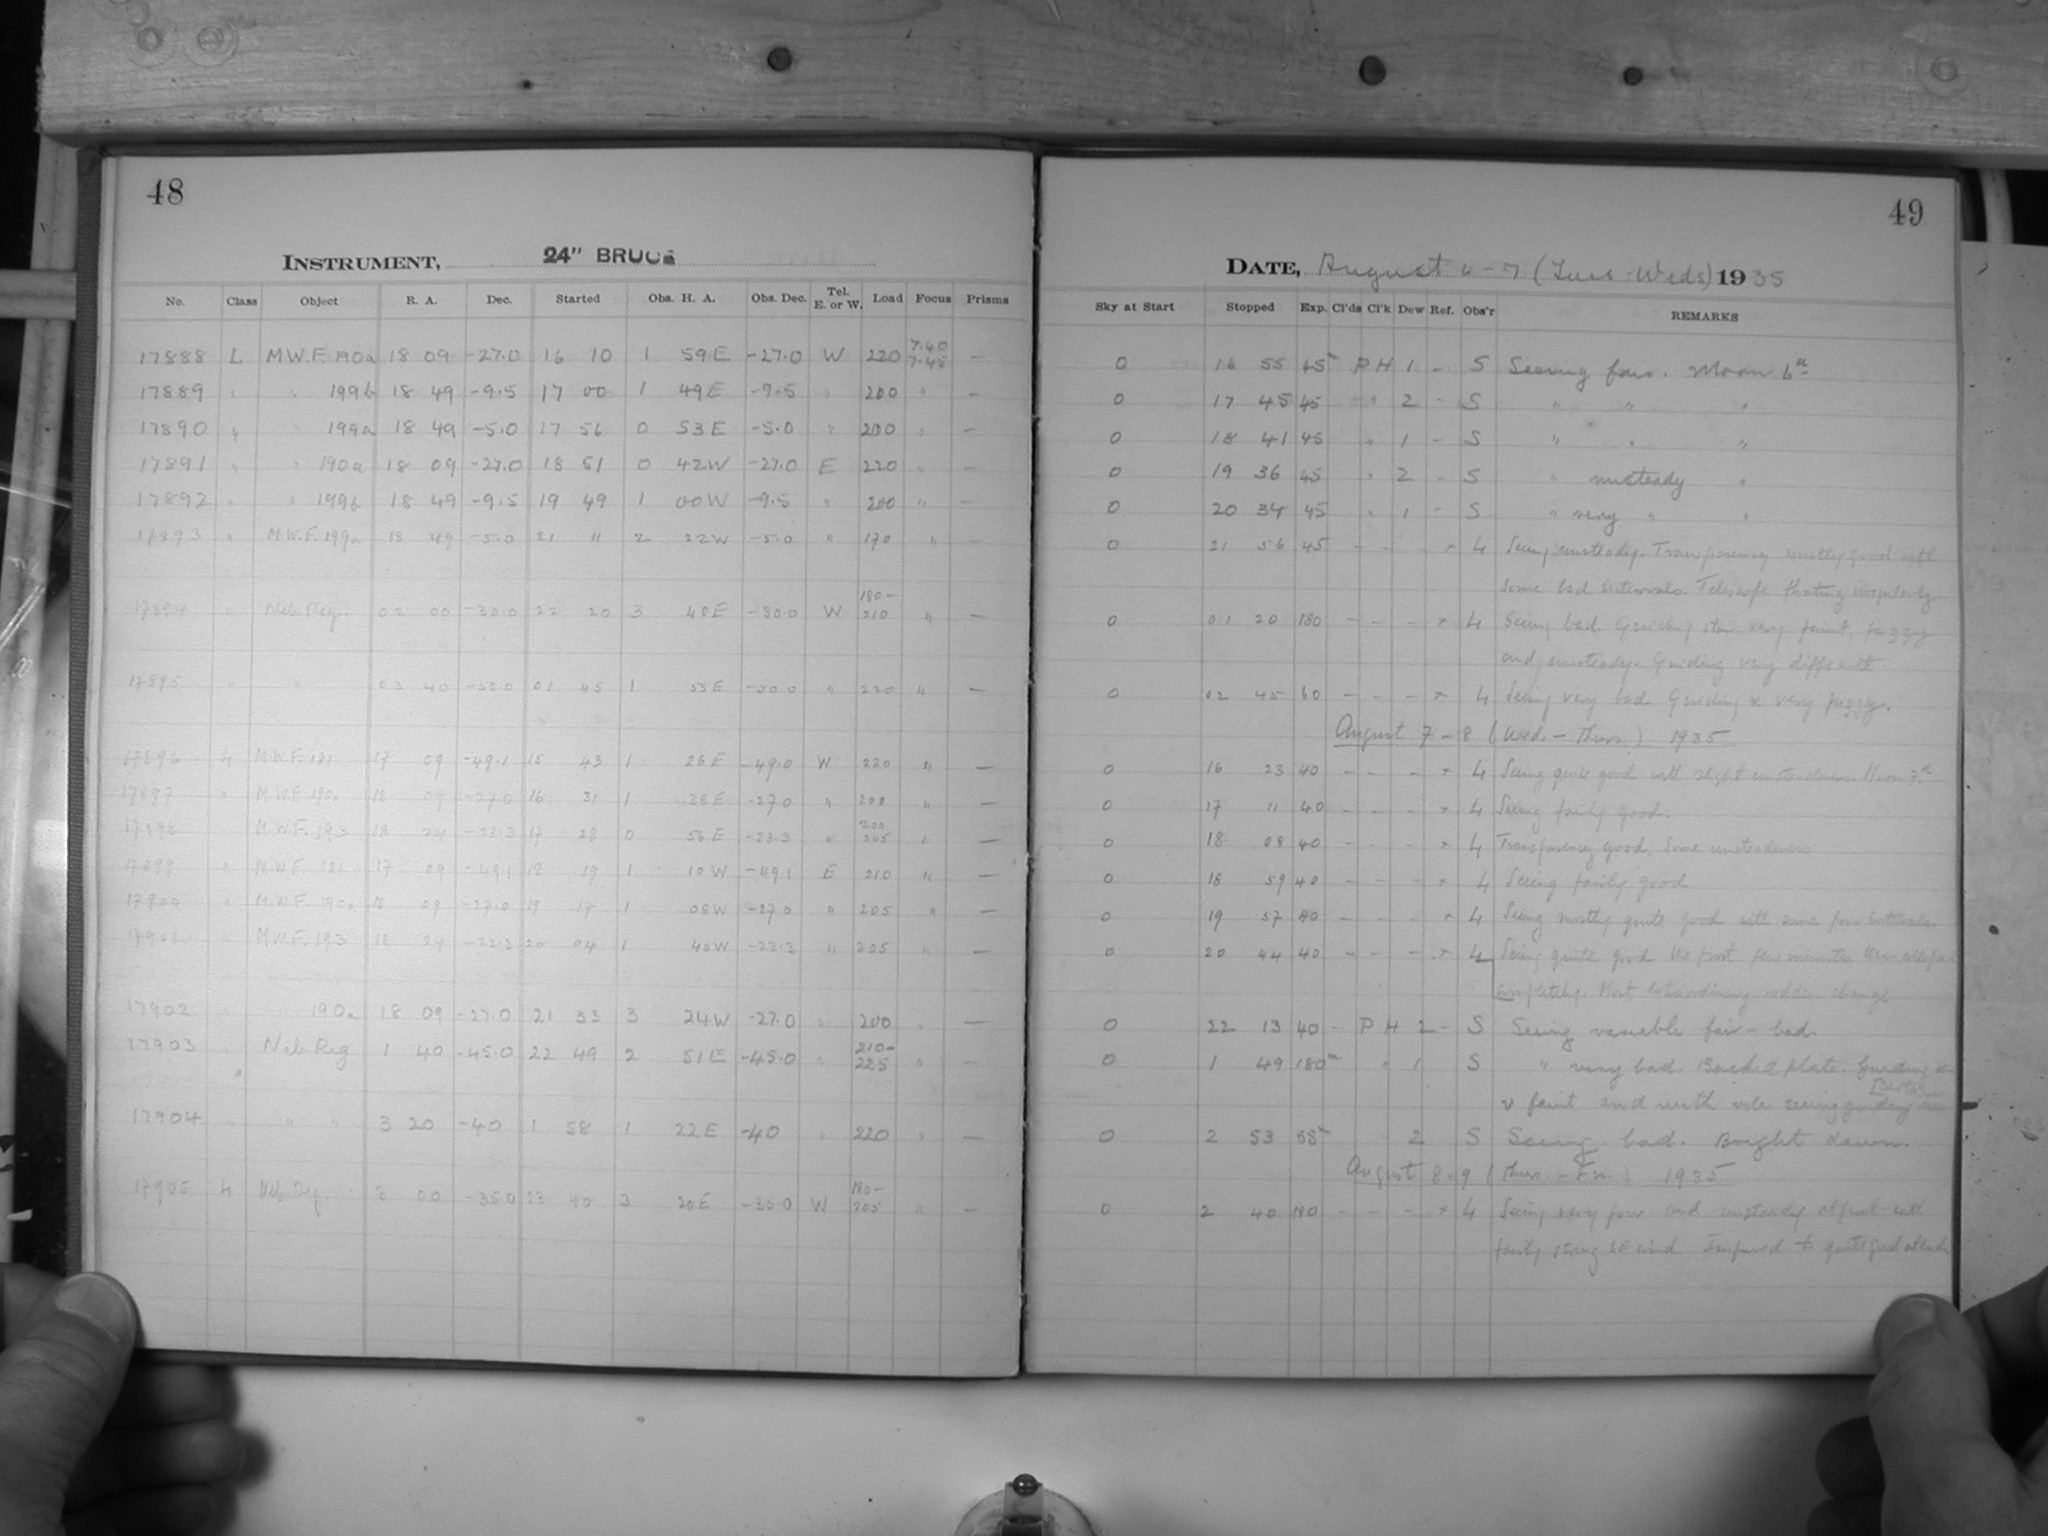 48
INSTRUMENT, 24" BRUCE
No. Class Object R. A. Dec. Started Obs. H. A. Obs. Dec. Tel. E. or W. Load Focus Prisms
17888 L M.W.F. 190a 18 09 -27.0 16 10 1 59E -27.0 W 220 7.40 7.45 –
17889 " " 199b 18 49 -9.5 17 00 1 49E -9.5 " 200 " –
17890 " " 199a 18 49 -5.0 17 56 0 53E -5.0 " 200 " –
17891 " " 190a 18 09 -27.0 18 51 0 42W -27.0 E 220 " –
17892 " " 199b 18 49 -9.5 19 49 1 00W -9.5 " 200 " –
17893 " M.W.F. 199a 18 49 -5.0 21 11 2 22W -5.0 " 170 " –
17894 " Neb Reg. 02 00 -30.0 22 20 3 40E -30.0 W 180-210 " –
17895 " " 03 40 -50.0 01 45 1 55E -50.0 " 220 " –
17896 M.W.F. 181 17 09 -49.1 15 43 1 26E -49.0 W 220 " –
17897 " M.W.F. 190a 18 09 -27.0 16 31 1 -27.0 " 200 " –
17898 M.W.F. 193 18 24 -23.3 17 28 0 56E -23.3 " 200 205 " –
17899 " M.W.F. 181 17 09 -49.1 18 19 1 10W -49.1 E 210 " –
17900 " M.W.F. 190a 18 09 -27.0 19 17 1 08W -27.0 " 205 " –
17901 " M.W.F. 193 18 24 -23.3 20 04 1 40W -23.3 " 205 " –
17902 190a 18 09 -27.0 21 33 3 24W -27.0 " 200 " –
17903 " Neb Reg 1 40 -45.0 22 49 2 51E -45.0 " 210-225 " –
17904 " " " 3 20 -40 1 58 1 22E -40 " 220 " –
17905 Neb Reg. 3 00 -35.0 23 40 3 20E -35.0 W 180-205 " –
49
DATE, August 6-7 (Tues-Weds) 1935
Sky at Start Stopped Exp. Cl'ds Cl'k Dew Ref. Obs'r REMARKS
0 16 55 45m P H 1 - S Seeing fair. Moon 6d
0 17 45 45 " 2 - S " " "
0 18 41 45 " 1 - S " " "
0 19 36 45 " 2 - S " unsteady "
0 20 34 45 " 1 - S " very " "
0 21 56 45 - - - * 4 Seeing unsteady. Transparency mostly good with
some bad intervals. Telescope floating irregularly
0 01 20 180 - - - * 4 Seeing bad. Guiding star very faint, fuzzy
and unsteady. Guiding very difficult
0 02 45 60 - - - * 4 Seeing very bad Guiding * very fuzzy.
August 7-8 (Wed.-Thurs.) 1935
0 16 23 40 - - - * 4 Seeing quite good with slight unsteadiness. Moon 7d
0 17 11 40 - - - * 4 Seeing fairly good.
0 18 08 40 - - - * 4 Transparency good. Some unsteadiness
0 18 59 40 - - - * 4 Seeing fairly good
0 19 57 40 - - - * 4 Seeing mostly quite good with some poor intervals.
0 20 44 40 - - - * 4 Seeing quite good the first few minutes then collapsed
completely. Most extraordinary sudden change
0 22 13 40 - P H 2 - S Seeing variable fair - bad.
0 1 49 180m " 1 S " very bad. Backed plate. Guiding
v faint and with vile seeing guiding
0 2 53 55m 2 S Seeing bad. Bright dawn.
August 8-9 (Thurs.-Fri.) 1935
0 2 40 180 - - - * 4 Seeing very poor and unsteady at first with
fairly strong SE wind Improved to quite good at end